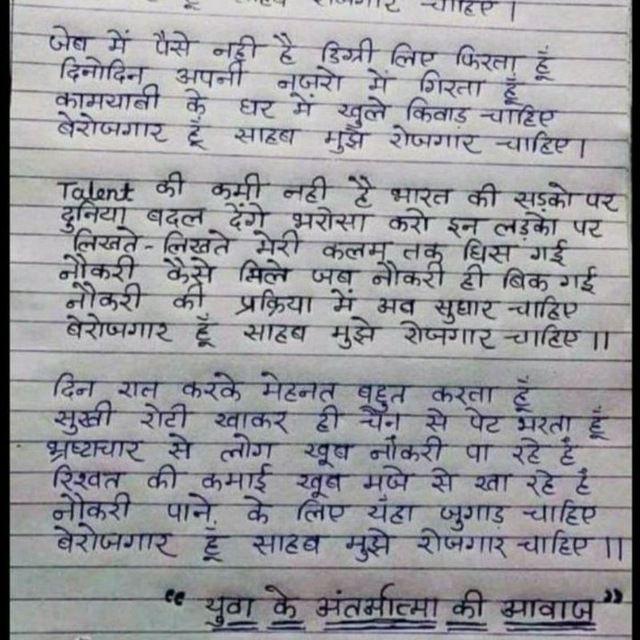 साहब रोजगार चाहिए।
जेब में पैसे नही है डिग्री लिए फिरता हूँ
दिनोदिन अपनी नज़रो में गिरता हूँ
कामयाबी के घर में खुले किवाड़ चाहिए
बेरोजगार हूँ साहब मुझे रोजगार चाहिए।
Talent की कमी नही है भारत की सड़को पर
दुनिया बदल देंगे भरोसा करो इन लड़को पर
लिखते-लिखते मेरी कलम तक घिस गई
नौकरी कैसे मिले जब नौकरी ही बिक गई
नौकरी की प्रक्रिया में अब सुधार चाहिए
बेरोजगार हूँ साहब मुझे रोजगार चाहिए॥
दिन रात करके मेहनत बहुत करता हूँ
सुखी रोटी खाकर ही चैन से पेट भरता हूँ
भ्रष्टाचार से लोग खूब नौकरी पा रहे है
रिश्वत की कमाई खूब मजे से खा रहे है
नौकरी पाने के लिए यँहा जुगाड़ चाहिए
बेरोजगार हूँ साहब मुझे रोजगार चाहिए॥
“ युवा के अंतर्मात्मा की आवाज ”